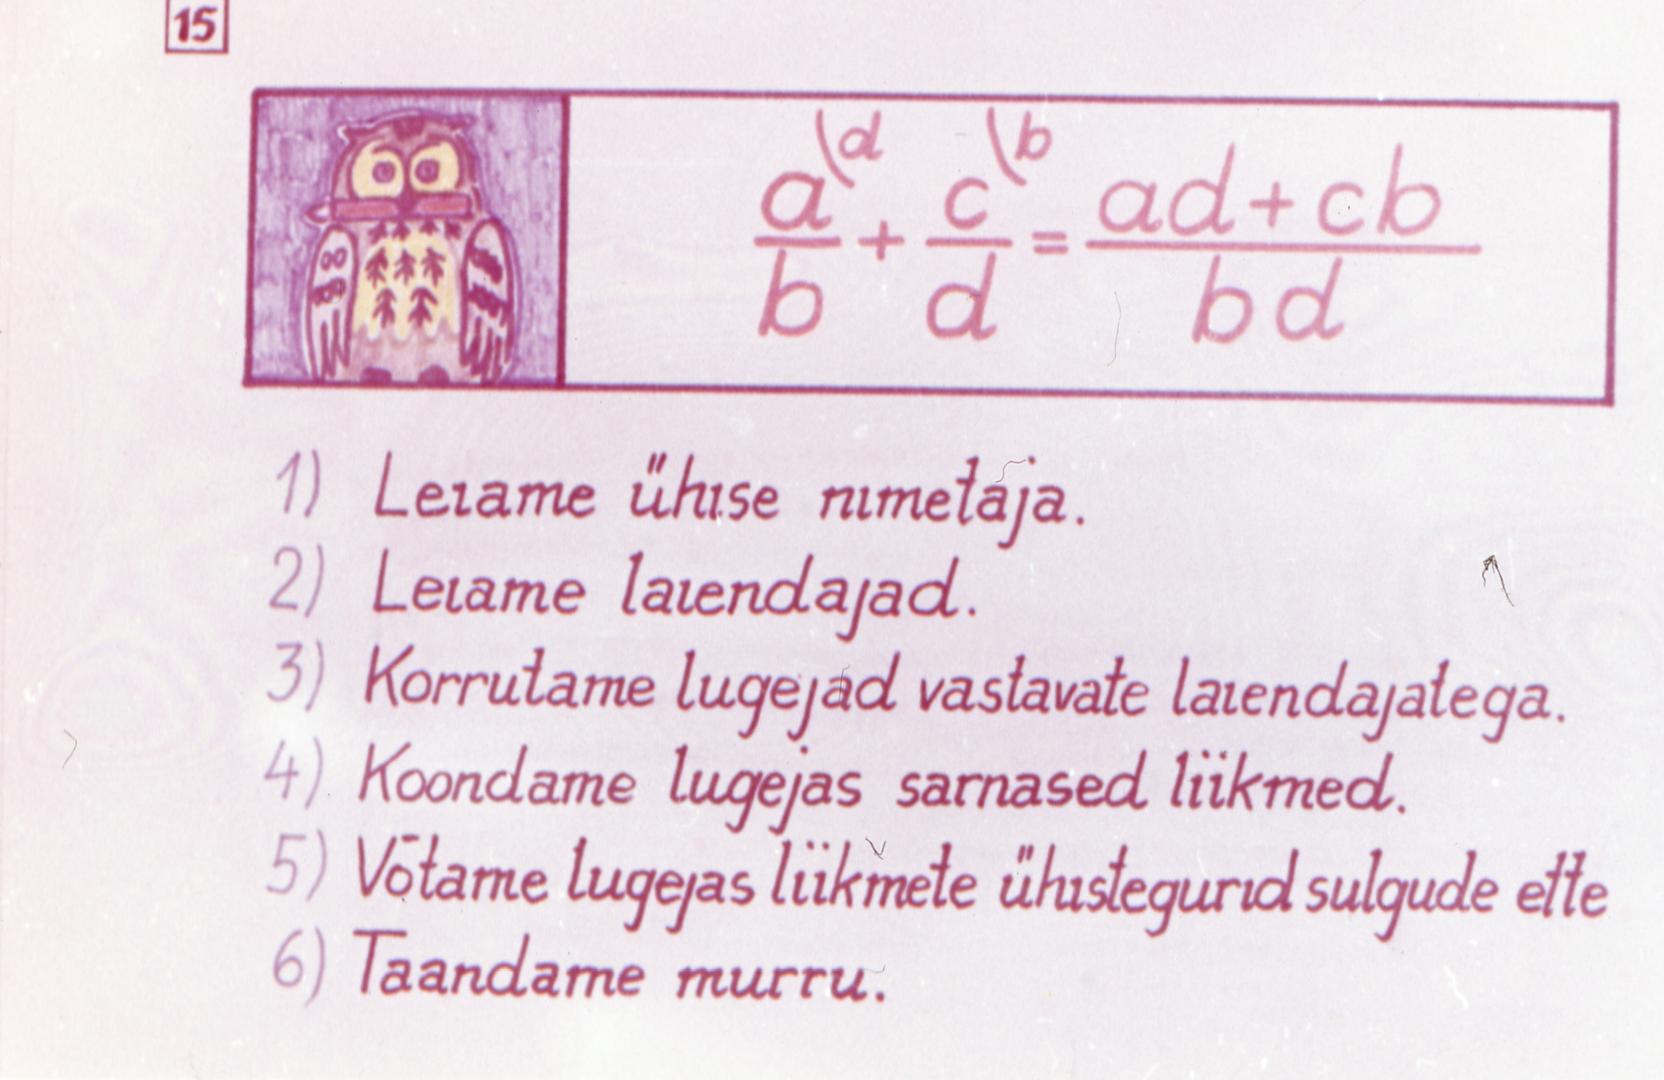 15
a\d/b + c\b/d = ad+cb/bd
1) Leiame ühise nimetaja.
2) Leiame laiendajad.
3) Korrutame lugejad vastavate laiendajatega.
4) Koondame lugejas sarnased liikmed.
5) Võtame lugejas liikmete ühistegurid sulgude ette
6) Taandame murru.